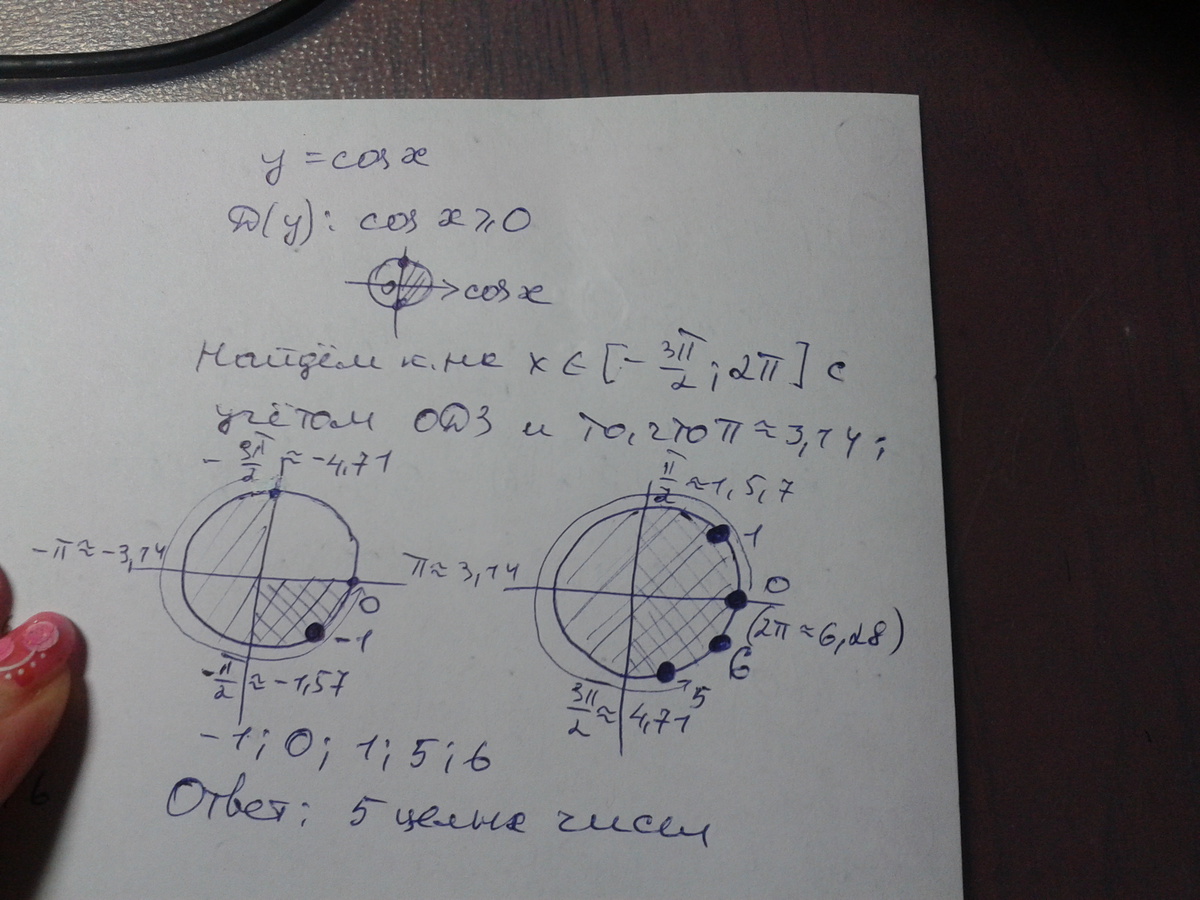 y = cos x
D(y): cos x ≥ 0
0 > cos x
Найдём к. на x ∈ [-3π/2; 2π] с
учётом ОДЗ и то, что π ≈ 3,14;
-3π/2 ≈ -4,71
-π ≈ -3,14
0
-1
-π/2 ≈ -1,57
π/2 ≈ 1,5,7
1
π ≈ 3,14
0
(2π ≈ 6,28)
6
5
3π/2 ≈ 4,71
-1; 0; 1; 5; 6
Ответ: 5 целых чисел